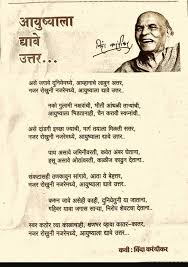 आयुष्याला
द्यावे
उत्तर...
असे जगावे दुनियेमध्ये, आव्हानाचे लावून अत्तर,
नजर रोखुनी नजरेमध्ये, आयुष्याला द्यावे उत्तर.
नको गुलामी नक्षत्रांची, भीती आंधळी ताऱ्यांची,
आयुष्याला भिडतानाही, चैन करावी स्वप्नांची.
असे दांडगी इच्छा ज्याची, मार्ग तयाला मिळती सत्तर,
नजर रोखुनी नजरेमध्ये, आयुष्याला द्यावे उत्तर.
पाय असावे जमिनीवरती, कवेत अंबर घेताना,
हसू असावे ओठांवरती, काळीज काढून देताना.
संकटासही ठणकावून सांगावे, आता ये बेहत्तर,
नजर रोखुनी नजरेमध्ये, आयुष्याला द्यावे उत्तर.
करून जावे असेही काही, दुनियेतुनी या जाताना,
गहिवर यावा जगास साऱ्या, निरोप शेवटचा देताना.
स्वर कठोर त्या काळाचाही, क्षणभर व्हावा कातर-कातर,
नजर रोखुनी नजरेमध्ये, आयुष्याला द्यावे उत्तर.
कवी : विंदा करंदीकर